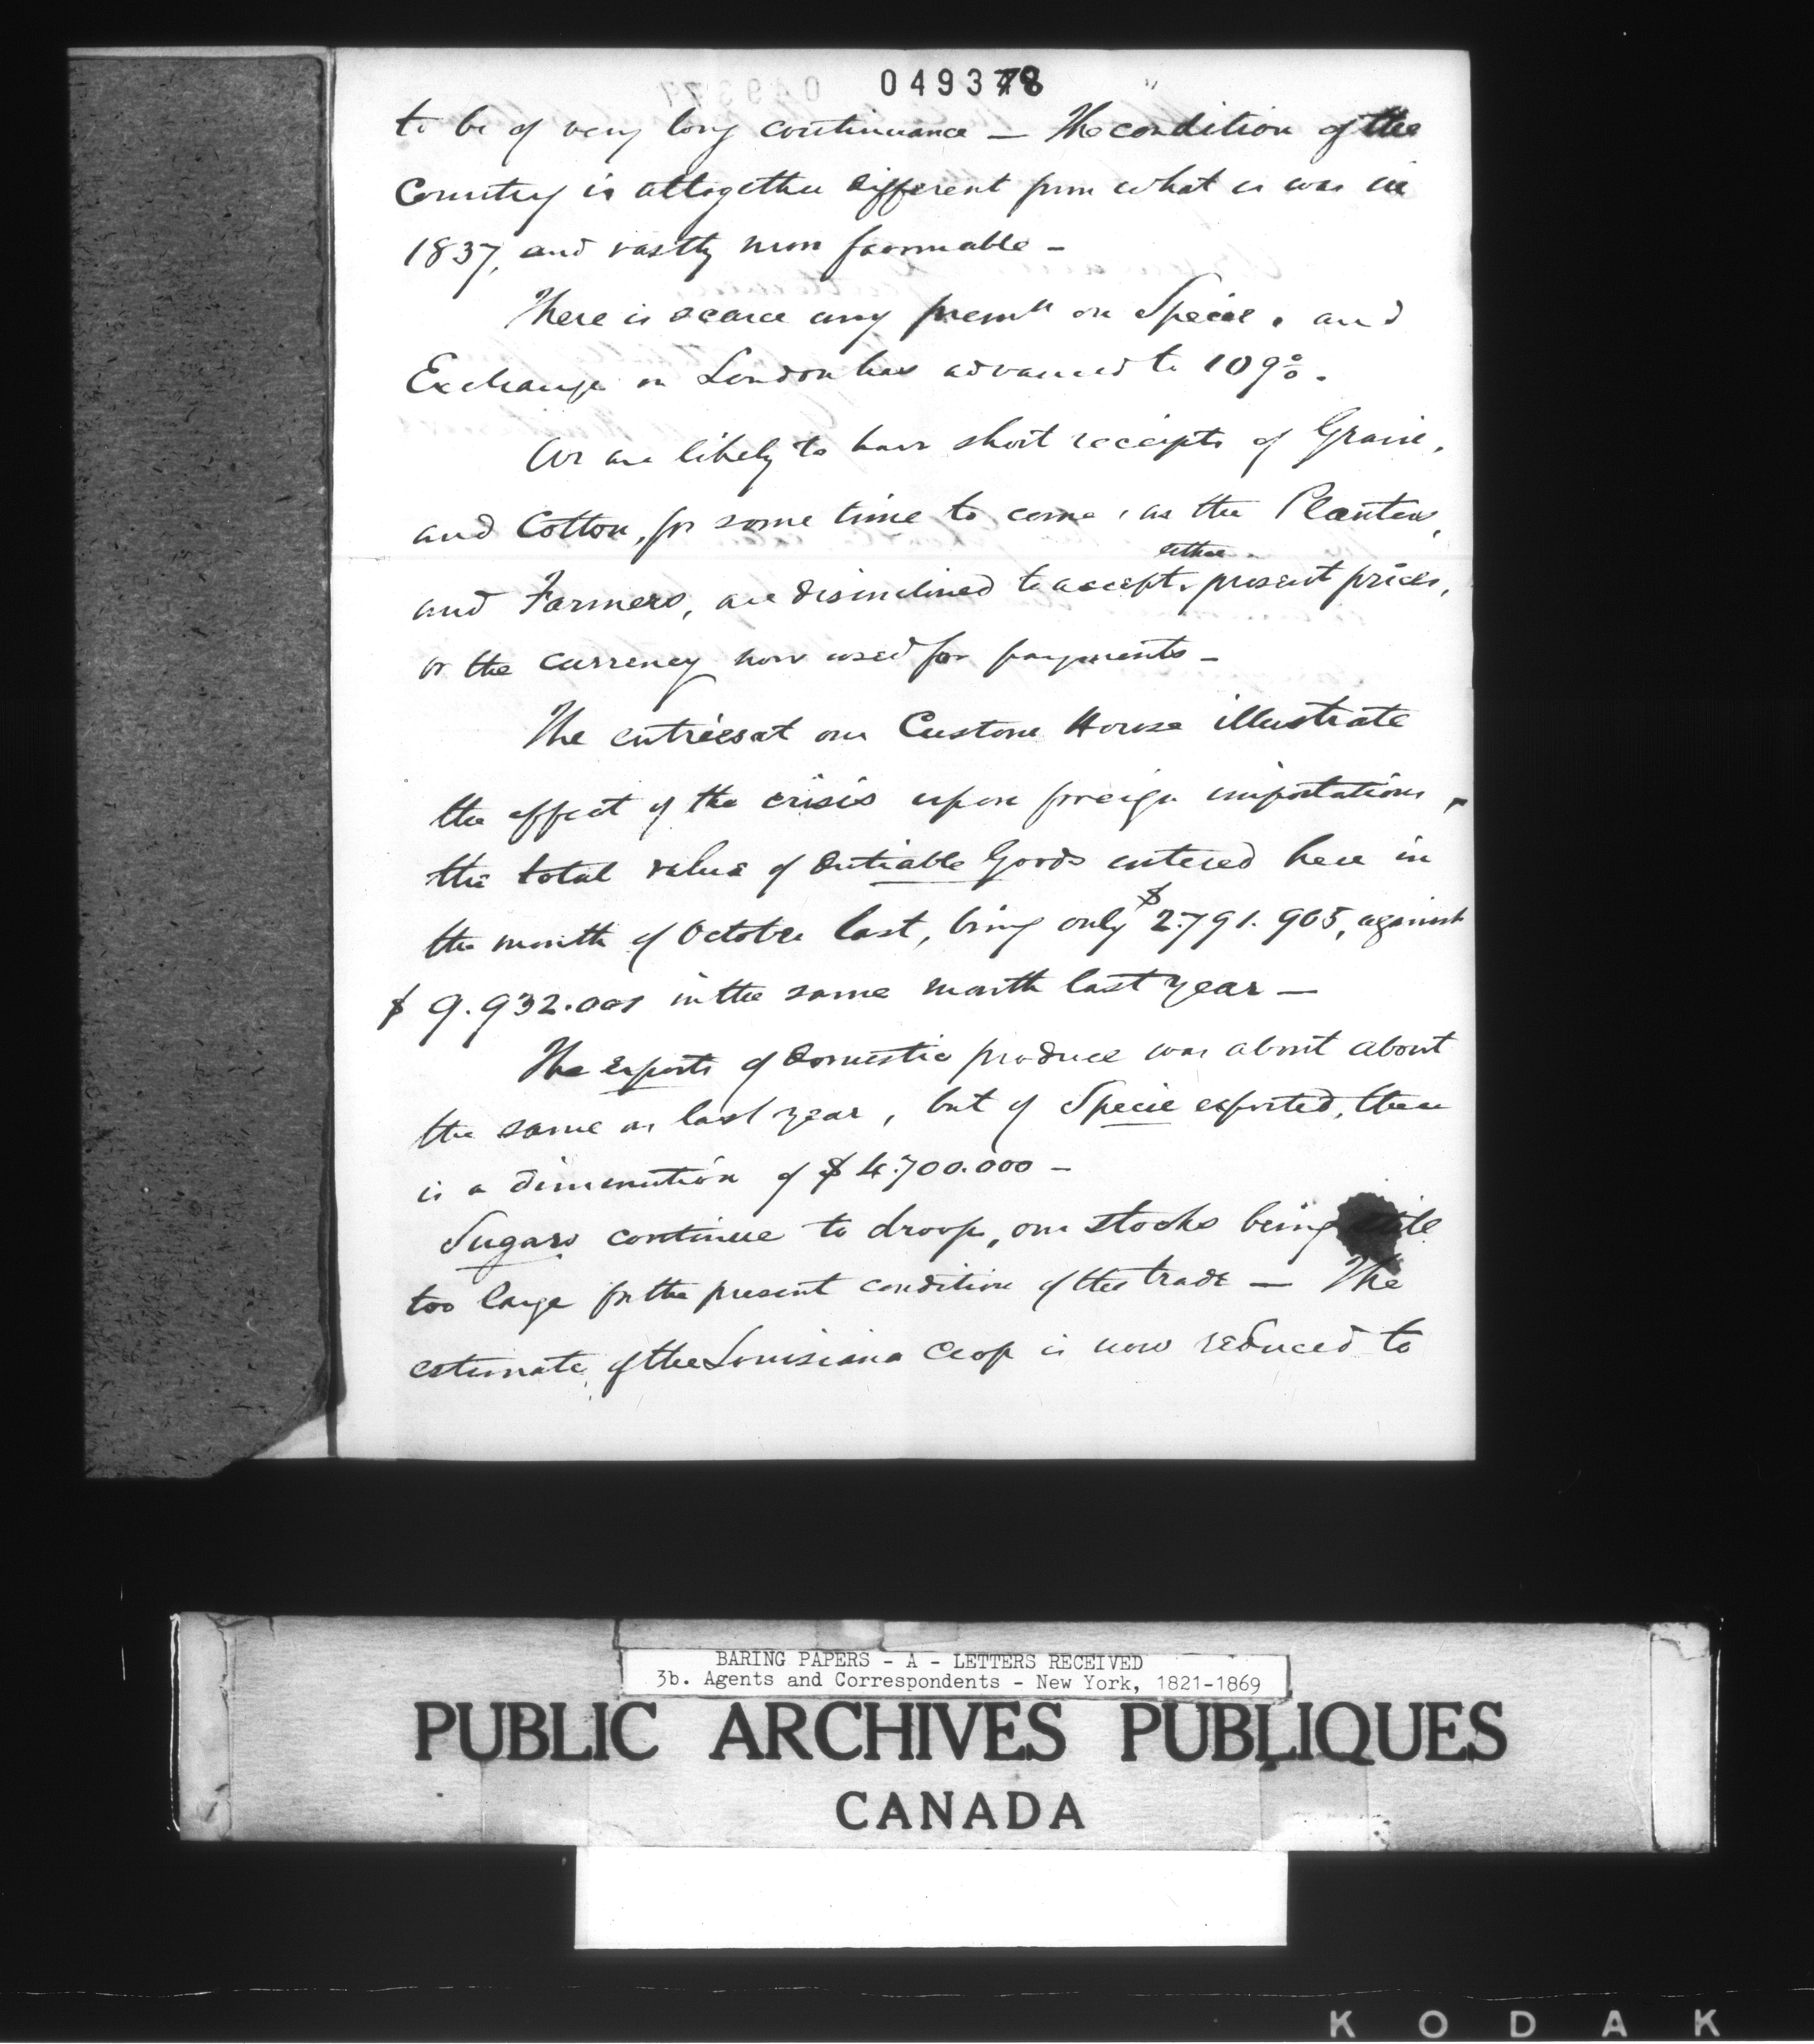 049378
to be of very long continuance — The condition of the
Country is altogether different from what it was in
1837, and vastly more favorable —
There is scarce any prem^m on Specie, and
Exchange on London has advanced to 109%.
We are likely to have short receipts of Grain,
and Cotton, for some time to come, as the Planters,
either
and Farmers, are disinclined to accept present prices,
or the currency now used for payments —
The entries at our Custom House illustrate
the effect of the crisis upon foreign importations,
the total value of dutiable Goods entered here in
the month of October last, being only $2.791.905, against
$9.932.001 in the same month last year —
The exports of domestic produce was about about
the same as last year, but of Specie exported, there
is a diminution of $4.700.000 —
Sugars continue to droop, our stocks being still
too large for the present condition of the trade — The
estimate of the Louisiana Crop is now reduced to
BARING PAPERS - A - LETTERS RECEIVED
3b. Agents and Correspondents - New York, 1821-1869
PUBLIC ARCHIVES PUBLIQUES
CANADA
KODAK